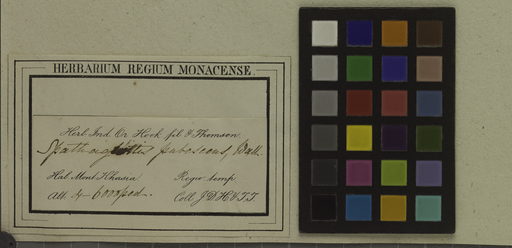 HERBARIUM REGIUM MONACENSE.
Herb. Ind. Or. Hook. fil. & Thomson.
pubescens,
Hab. Mont. Khasia Regio temp.
Alt. 4-6000 ped. Coll. J.D.H. & T.T.